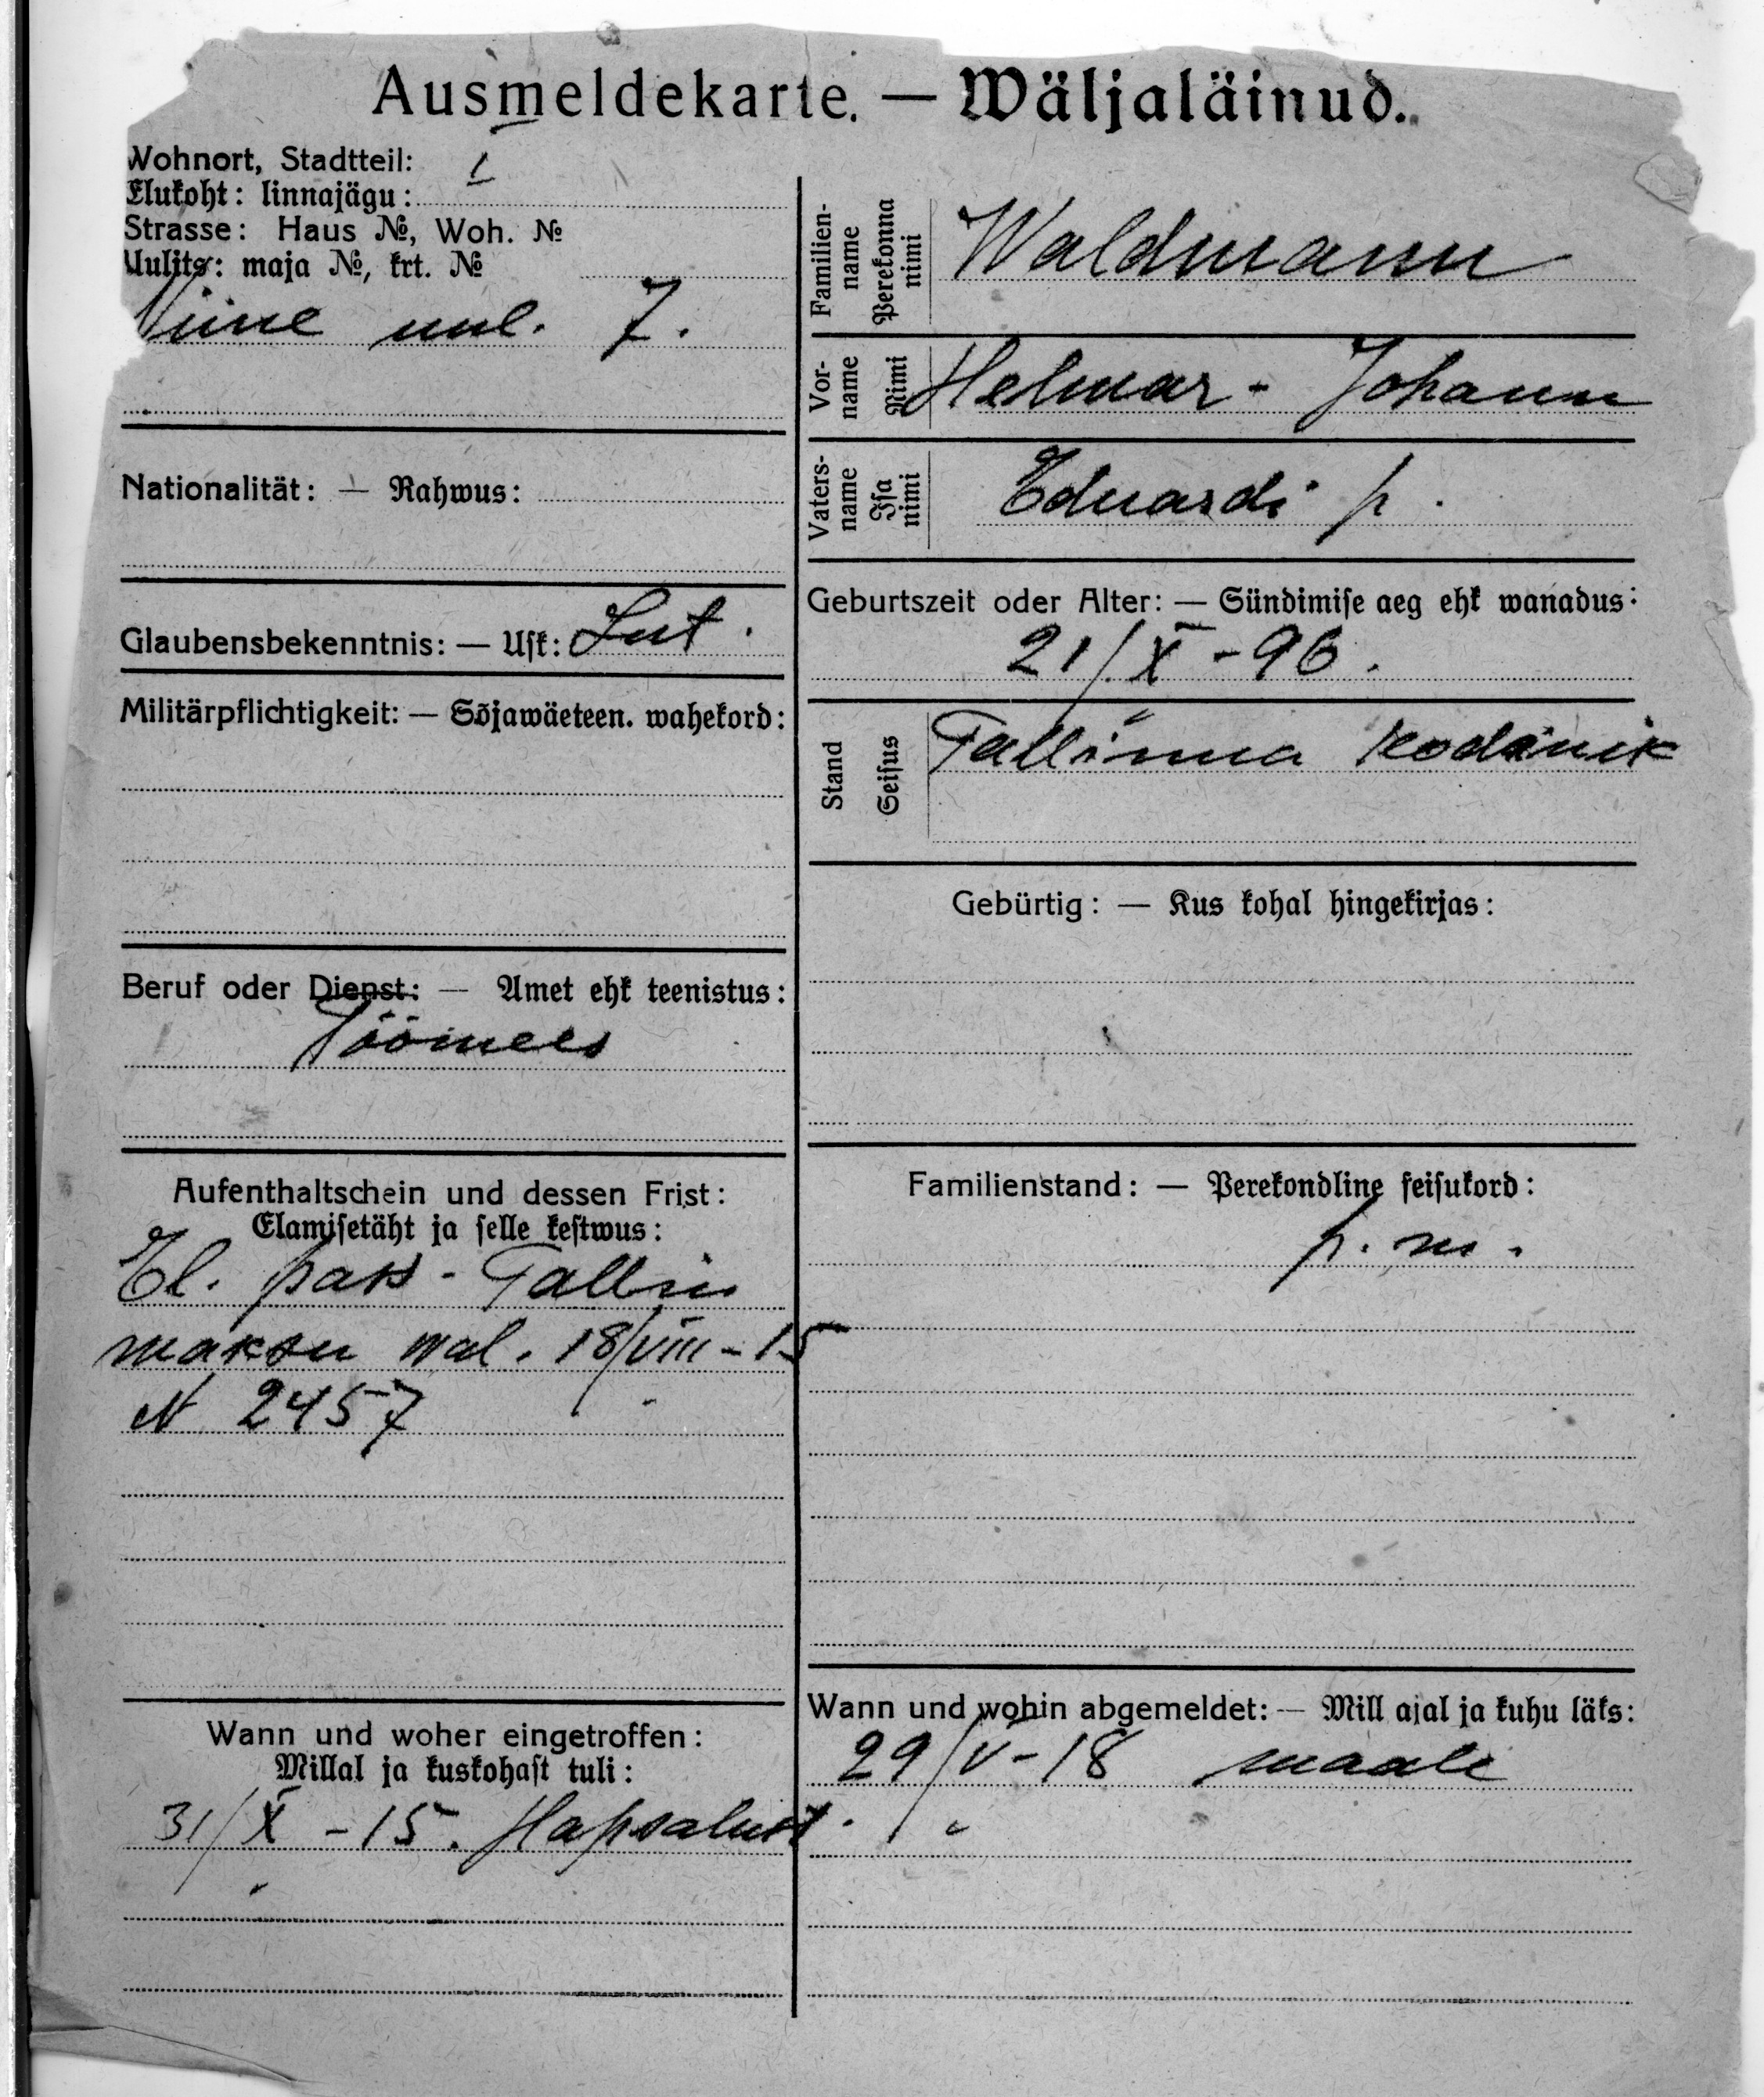 Ausmeldekarte. — Wäljaläinud.
Wohnort, Stadtteil: I
Elukoht: linnajägu:
Strasse: Haus №, Woh. №
Uulits: maja №, krt. №
Niine uul. 7.
Nationalität: — Rahwus:
Glaubensbekenntnis: — Usk: Lut.
Militärpflichtigkeit: — Sõjawäeteen. wahekord:
Beruf oder Dienst: — Amet ehk teenistus:
Töömees
Aufenthaltschein und dessen Frist:
Elamisetäht ja selle kestwus:
El. pass - Tallin
maksu wal. 18/VIII - 15
N 2457
Wann und woher eingetroffen:
Millal ja kuskohast tuli:
31/X - 15. Hapsalust.
Familien-name Perekonna nimi Waldmann
Vor-name Nimi Helmar - Johann
Vaters-name Isa nimi Eduardi p.
Geburtszeit oder Alter: — Sündimise aeg ehk wanadus:
21/X - 96.
Stand Seisus Tallinna kodanik
Gebürtig: — Kus kohal hingekirjas:
Familienstand: — Perekondline seisukord:
p. m.
Wann und wohin abgemeldet: — Mill ajal ja kuhu läks:
29/V - 18 maale